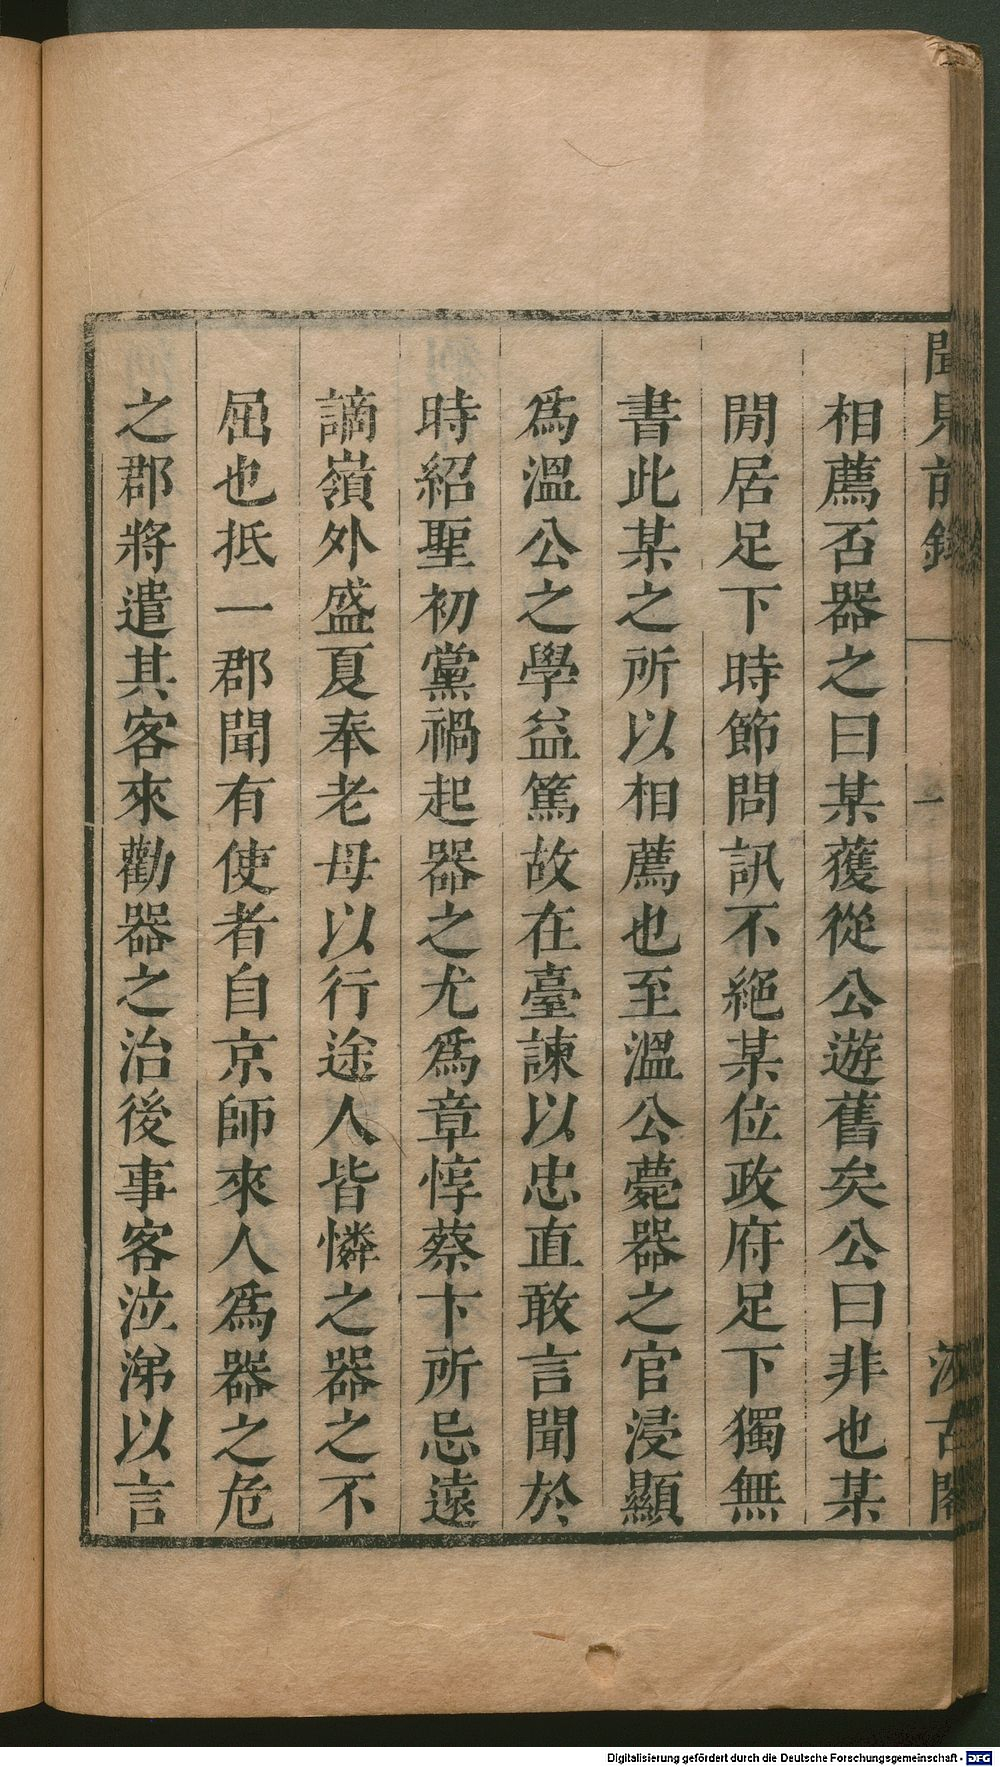 聞見前錄
一
汲古閣
相薦否器之曰某獲從公遊舊矣公曰非也某
閒居足下時節問訊不絕某位政府足下獨無
書此某之所以相薦也至溫公薨器之官浸顯
爲溫公之學益篤故在臺諫以忠直敢言聞於
時紹聖初黨禍起器之尤爲章惇蔡卞所忌遠
謫嶺外盛夏奉老母以行途人皆憐之器之不
屈也抵一郡聞有使者自京師來人爲器之危
之郡將遣其客來勸器之治後事客泣涕以言
Digitalisierung gefördert durch die Deutsche Forschungsgemeinschaft - DFG